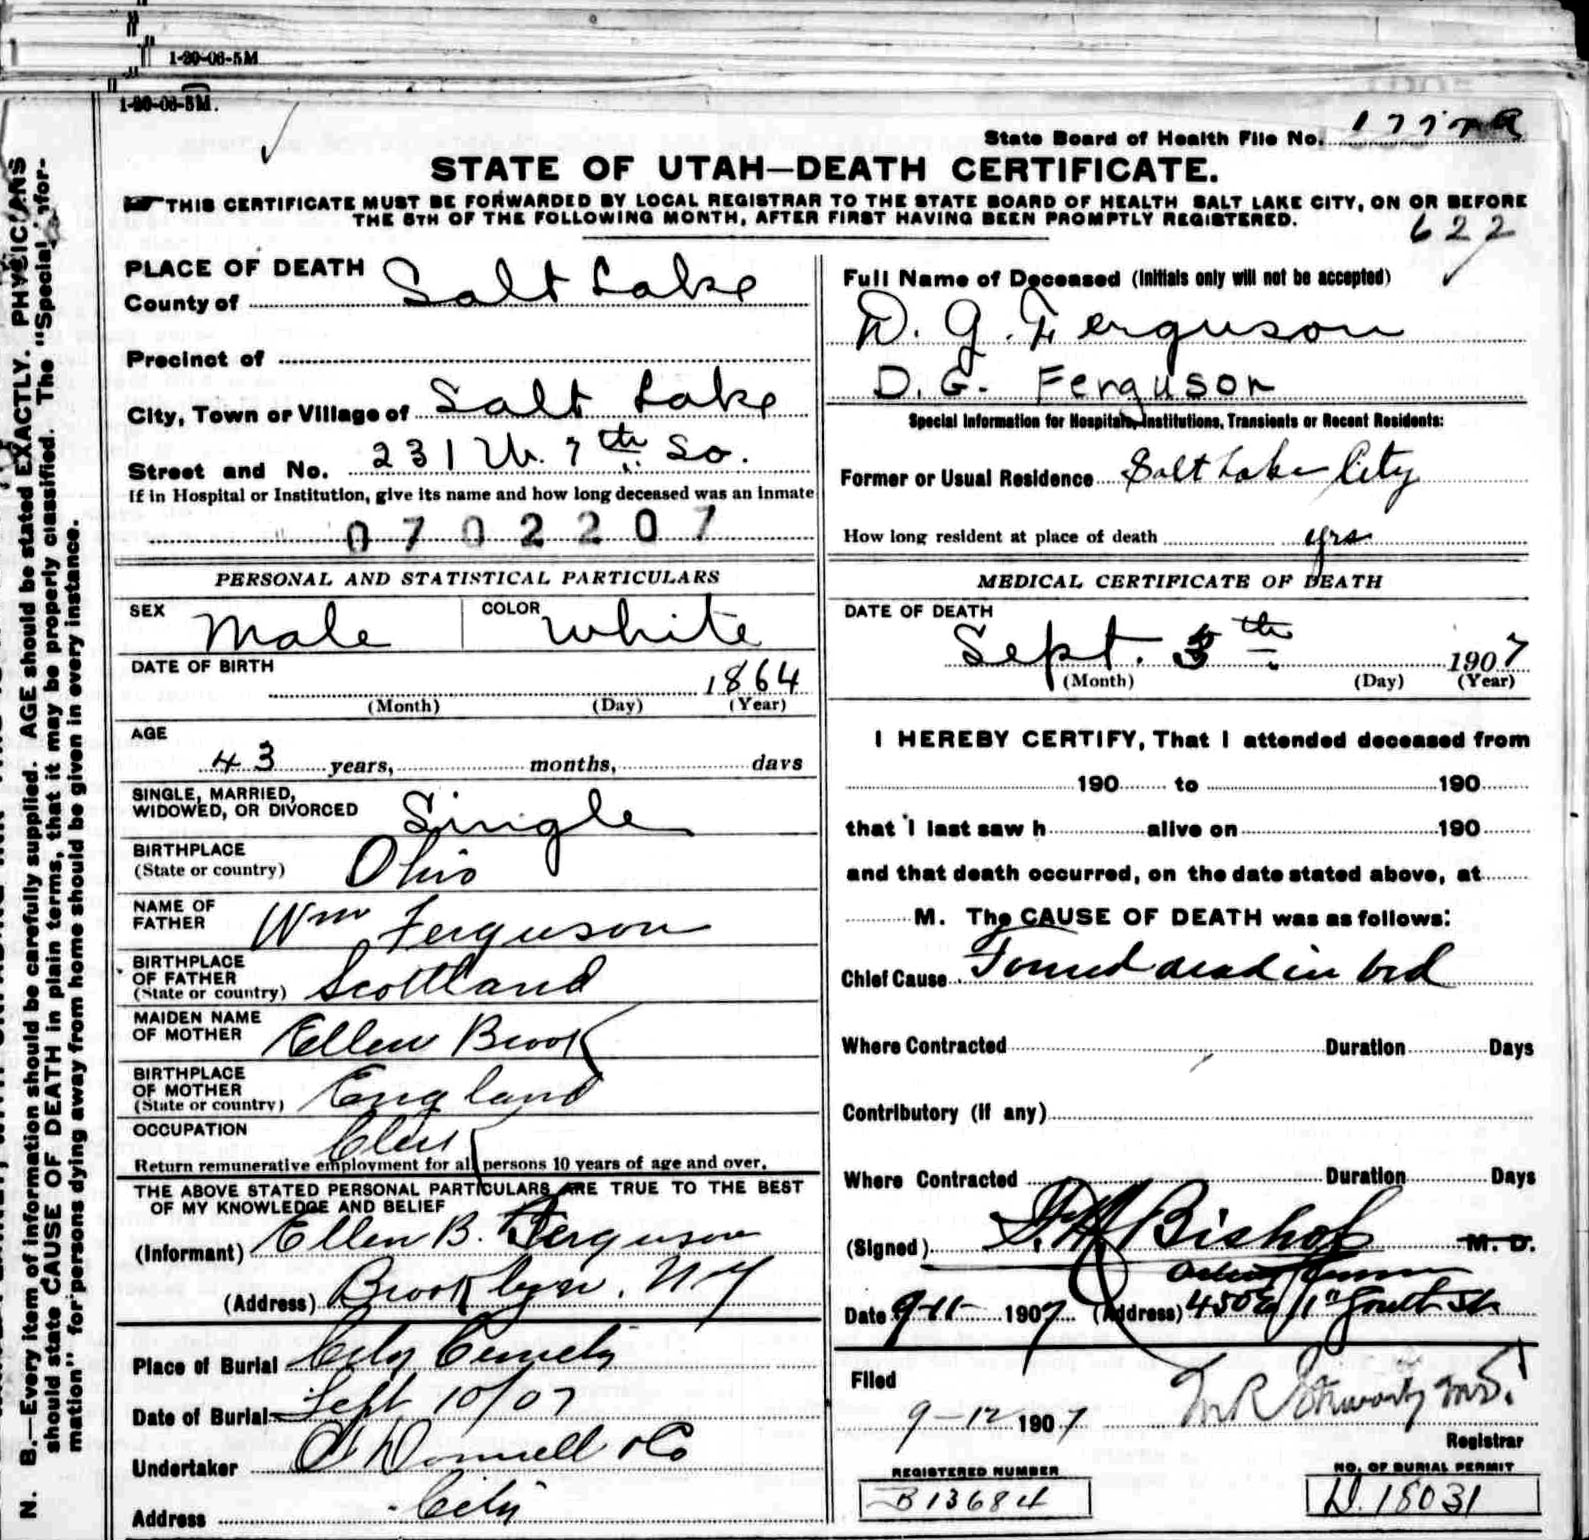 1-20-06-5M
1-20-06-5M.
State Board of Health File No.
STATE OF UTAH—DEATH CERTIFICATE.
THIS CERTIFICATE MUST BE FORWARDED BY LOCAL REGISTRAR TO THE STATE BOARD OF HEALTH SALT LAKE CITY, ON OR BEFORE
THE 5TH OF THE FOLLOWING MONTH, AFTER FIRST HAVING BEEN PROMPTLY REGISTERED.
622
N. B.—Every item of information should be carefully supplied. AGE should be stated EXACTLY. PHYSICIANS
should state CAUSE OF DEATH in plain terms, that it may be properly classified. The "Special Infor-
mation" for persons dying away from home should be given in every instance.
PLACE OF DEATH
County of Salt Lake
Precinct of
City, Town or Village of Salt Lake
Street and No. 231 W. 7th So.
If in Hospital or Institution, give its name and how long deceased was an inmate
0702207
PERSONAL AND STATISTICAL PARTICULARS
SEX Male COLOR White
DATE OF BIRTH
1864
(Month) (Day) (Year)
AGE
43 years, months, days
SINGLE, MARRIED,
WIDOWED, OR DIVORCED Single
BIRTHPLACE
(State or country) Ohio
NAME OF
FATHER Wm Ferguson
BIRTHPLACE
OF FATHER
(State or country) Scottland
MAIDEN NAME
OF MOTHER Ellen Brook
BIRTHPLACE
OF MOTHER
(State or country) England
OCCUPATION Clerk
Return remunerative employment for all persons 10 years of age and over.
THE ABOVE STATED PERSONAL PARTICULARS ARE TRUE TO THE BEST
OF MY KNOWLEDGE AND BELIEF
(Informant) Ellen B. Ferguson
(Address) Brooklyn. N Y
Place of Burial City Cemety
Date of Burial Sept 10/07
Undertaker O'Donnell & Co
Address City
Full Name of Deceased (Initials only will not be accepted)
D. G. Ferguson
D. G. Ferguson
Special Information for Hospitals, Institutions, Transients or Recent Residents:
Former or Usual Residence Salt Lake City
How long resident at place of death yrs
MEDICAL CERTIFICATE OF DEATH
DATE OF DEATH
Sept. th 1907
(Month) (Day) (Year)
I HEREBY CERTIFY, That I attended deceased from
190 to 190
that I last saw h alive on 190
and that death occurred, on the date stated above, at
M. The CAUSE OF DEATH was as follows:
Chief Cause Found dead in bed
Where Contracted Duration Days
Contributory (if any)
Where Contracted Duration Days
(Signed) Bishop M. D.
Date 9-11- 1907 (Address) 450 E 11" South St
Filed
9-12 1907
Registrar
REGISTERED NUMBER
B13684
NO. OF BURIAL PERMIT
D. 18031